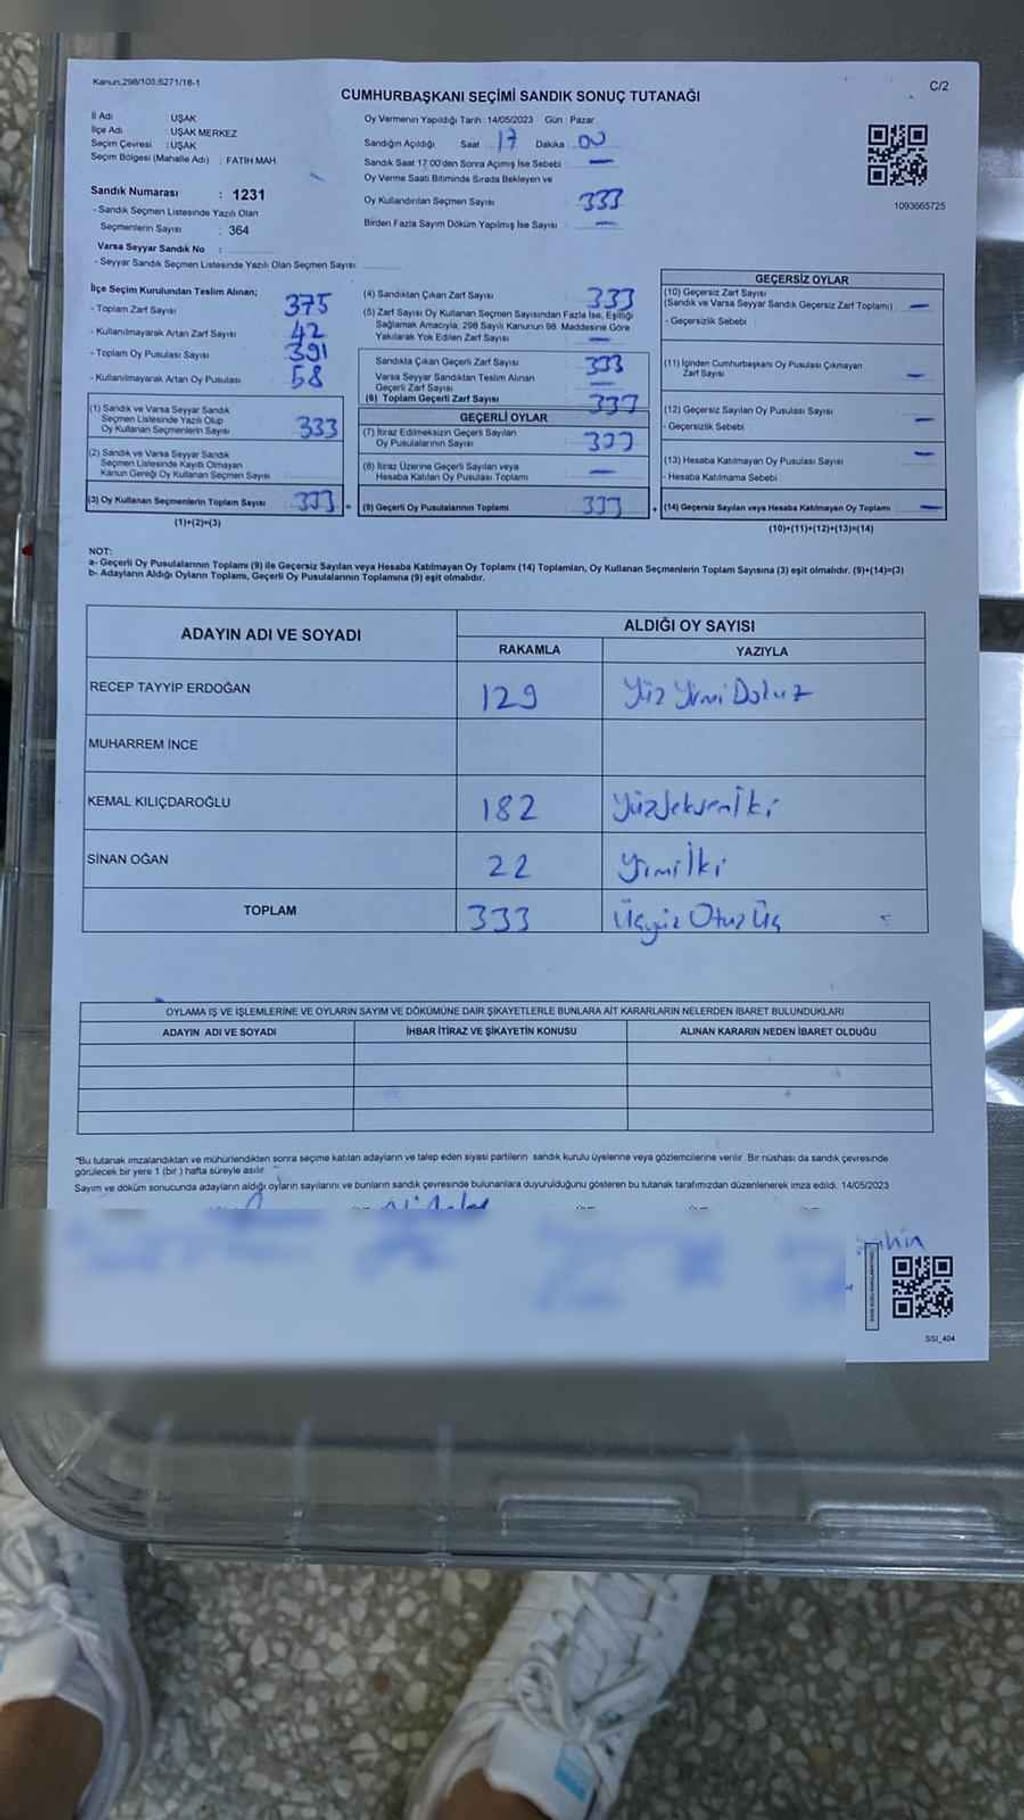 Kanun.298/103.6271/16-1
C/2
CUMHURBAŞKANI SEÇİMİ SANDIK SONUÇ TUTANAĞI
İl Adı UŞAK
İlçe Adı : UŞAK MERKEZ
Seçim Çevresi : UŞAK
Seçim Bölgesi (Mahalle Adı) : FATİH MAH.
Sandık Numarası : 1231
- Sandık Seçmen Listesinde Yazılı Olan
Seçmenlerin Sayısı : 364
Varsa Seyyar Sandık No :
- Seyyar Sandık Seçmen Listesinde Yazılı Olan Seçmen Sayısı
Oy Vermenin Yapıldığı Tarih : 14/05/2023 Gün : Pazar
Sandığın Açıldığı Saat 17 Dakika 00
Sandık Saat 17:00'den Sonra Açılmış İse Sebebi —
Oy Verme Saati Bitiminde Sırada Bekleyen ve
Oy Kullandırılan Seçmen Sayısı 333
Birden Fazla Sayım Döküm Yapılmış İse Sayısı —
1093665725
İlçe Seçim Kurulundan Teslim Alınan;
- Toplam Zarf Sayısı 375
- Kullanılmayarak Artan Zarf Sayısı 42
- Toplam Oy Pusulası Sayısı 391
- Kullanılmayarak Artan Oy Pusulası 58
(1) Sandık ve Varsa Seyyar Sandık
Seçmen Listesinde Yazılı Olup
Oy Kullanan Seçmenlerin Sayısı 333
(2) Sandık ve Varsa Seyyar Sandık
Seçmen Listesinde Kayıtlı Olmayan
Kanun Gereği Oy Kullanan Seçmen Sayısı
(3) Oy Kullanan Seçmenlerin Toplam Sayısı 333 =
(1)+(2)=(3)
(4) Sandıktan Çıkan Zarf Sayısı 333
(5) Zarf Sayısı Oy Kullanan Seçmen Sayısından Fazla İse, Eşitliği
Sağlamak Amacıyla, 298 Sayılı Kanunun 98. Maddesine Göre
Yakılarak Yok Edilen Zarf Sayısı —
Sandıkta Çıkan Geçerli Zarf Sayısı 333
Varsa Seyyar Sandıktan Teslim Alınan
Geçerli Zarf Sayısı —
(6) Toplam Geçerli Zarf Sayısı 333
GEÇERLİ OYLAR
(7) İtiraz Edilmeksizin Geçerli Sayılan
Oy Pusulalarının Sayısı 333
(8) İtiraz Üzerine Geçerli Sayılan veya
Hesaba Katılan Oy Pusulası Toplamı —
(9) Geçerli Oy Pusulalarının Toplamı 333 +
GEÇERSİZ OYLAR
(10) Geçersiz Zarf Sayısı
(Sandık ve Varsa Seyyar Sandık Geçersiz Zarf Toplamı) —
- Geçersizlik Sebebi
(11) İçinden Cumhurbaşkanı Oy Pusulası Çıkmayan
Zarf Sayısı —
(12) Geçersiz Sayılan Oy Pusulası Sayısı —
- Geçersizlik Sebebi
(13) Hesaba Katılmayan Oy Pusulası Sayısı —
- Hesaba Katılmama Sebebi
(14) Geçersiz Sayılan veya Hesaba Katılmayan Oy Toplamı —
(10)+(11)+(12)+(13)=(14)
NOT:
a- Geçerli Oy Pusulalarının Toplamı (9) ile Geçersiz Sayılan veya Hesaba Katılmayan Oy Toplamı (14) Toplamları, Oy Kullanan Seçmenlerin Toplam Sayısına (3) eşit olmalıdır. (9)+(14)=(3)
b- Adayların Aldığı Oyların Toplamı, Geçerli Oy Pusulalarının Toplamına (9) eşit olmalıdır.
ADAYIN ADI VE SOYADI
ALDIĞI OY SAYISI
RAKAMLA YAZIYLA
RECEP TAYYİP ERDOĞAN 129 Yüz Yirmi Dokuz
MUHARREM İNCE
KEMAL KILIÇDAROĞLU 182 Yüzseksen İki
SİNAN OĞAN 22 Yirmi İki
TOPLAM 333 Üçyüz Otuz Üç
OYLAMA İŞ VE İŞLEMLERİNE VE OYLARIN SAYIM VE DÖKÜMÜNE DAİR ŞİKAYETLERLE BUNLARA AİT KARARLARIN NELERDEN İBARET BULUNDUKLARI
ADAYIN ADI VE SOYADI İHBAR İTİRAZ VE ŞİKAYETİN KONUSU ALINAN KARARIN NEDEN İBARET OLDUĞU
"Bu tutanak imzalandıktan ve mühürlendikten sonra seçime katılan adayların ve talep eden siyasi partilerin sandık kurulu üyelerine veya gözlemcilerine verilir. Bir nüshası da sandık çevresinde
görülecek bir yere 1 (bir ) hafta süreyle asılır.
Sayım ve döküm sonucunda adayların aldığı oyların sayılarını ve bunların sandık çevresinde bulunanlara duyurulduğunu gösteren bu tutanak tarafımızdan düzenlenerek imza edildi. 14/05/2023
SSI_404